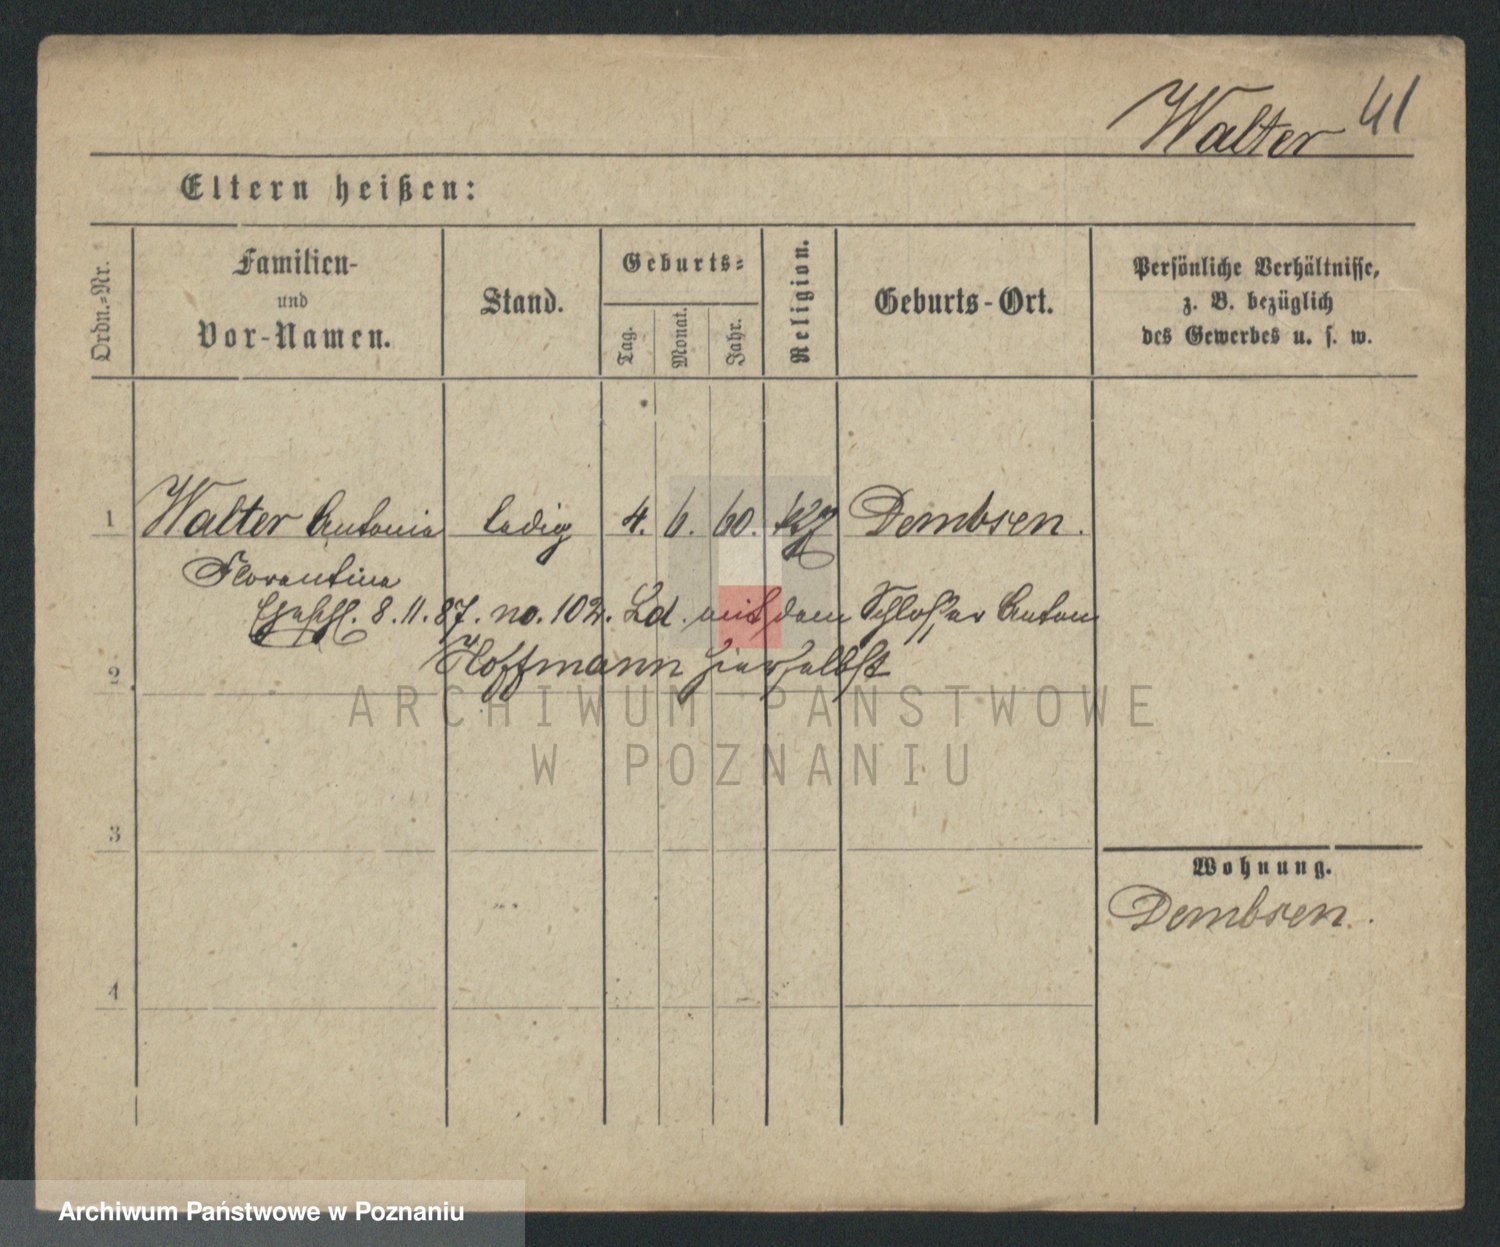 Walter 41
Eltern heißen:
Ordn.-Nr.
Familien-
und
Vor-Namen.
Stand.
Geburts-
Tag.
Monat.
Jahr.
Religion.
Geburts-Ort.
Persönliche Verhältnisse,
z. B. bezüglich
des Gewerbes u. s. w.
1 Walter Antonie ledig 4. 6. 60. Dembsen.
Florentine
Eheschl. 8.11.87. no. 102. Ld. mit dem Schlosser Anton
Hoffmann hierselbst
2
ARCHIWUM PAŃSTWOWE
W POZNANIU
3
Wohnung.
Dembsen.
4
Archiwum Państwowe w Poznaniu